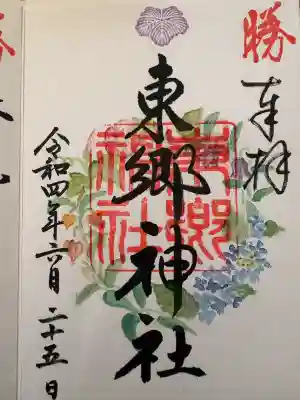 勝
奉拝
東郷神社
東郷神社
令和四年六月二十五日